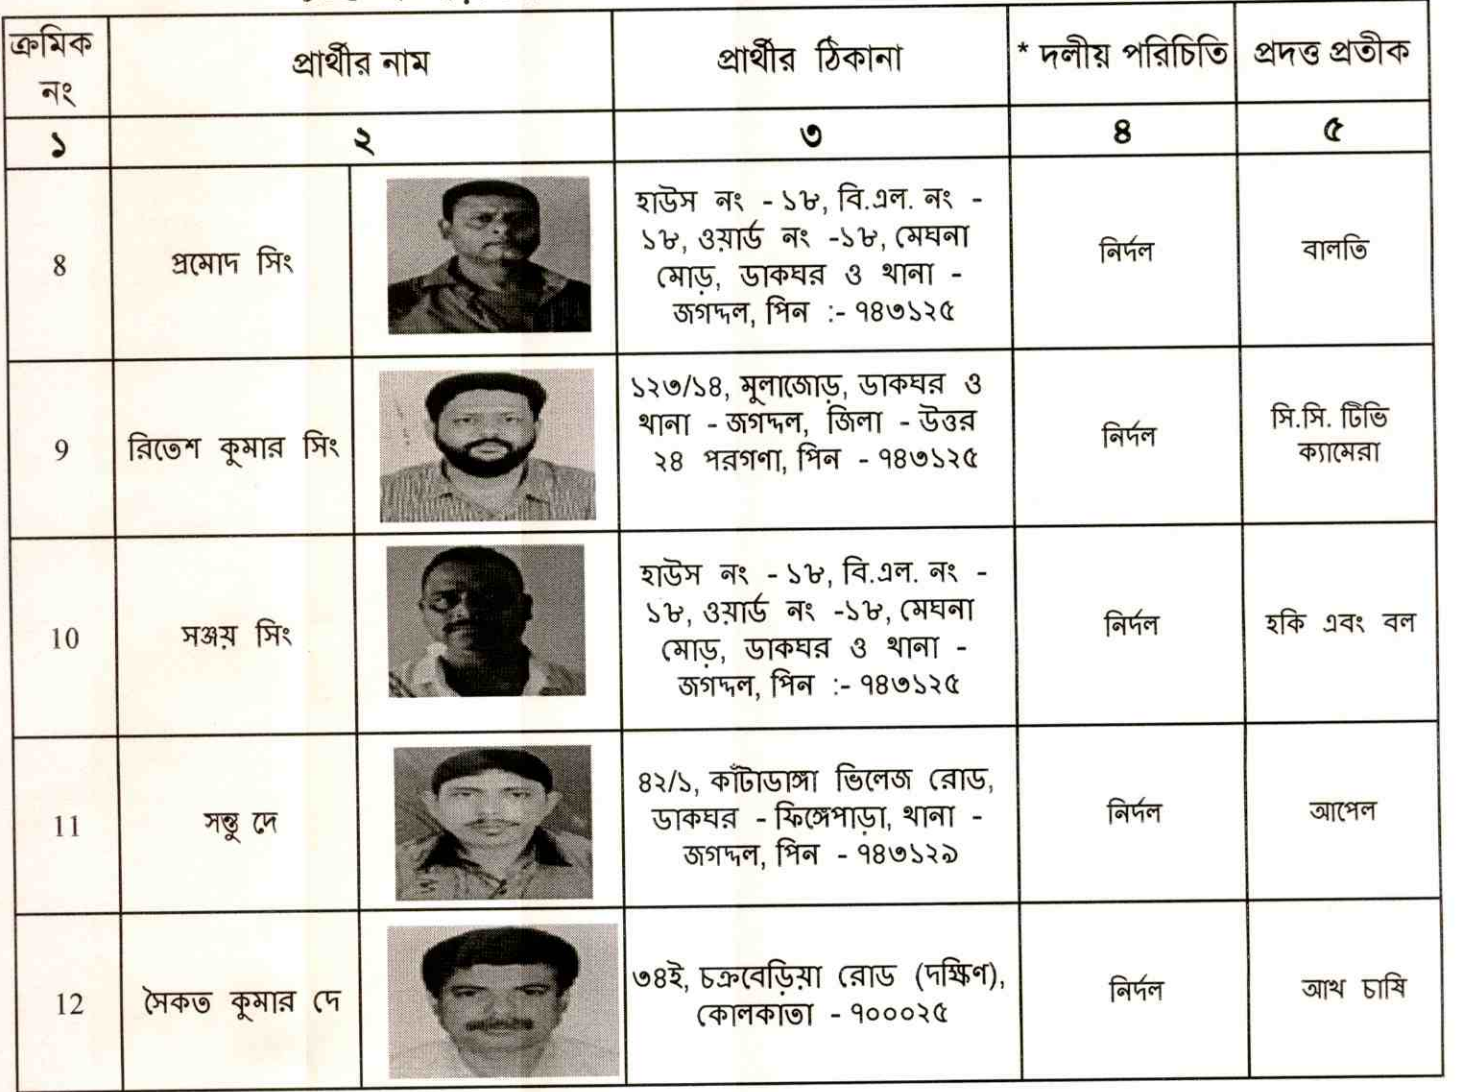 ক্রমিক নং প্রার্থীর নাম প্রার্থীর ঠিকানা * দলীয় পরিচিতি প্রদত্ত প্রতীক
১ ২ ৩ ৪ ৫
8 প্রমোদ সিং
হাউস নং - ১৮, বি.এল. নং -
১৮, ওয়ার্ড নং -১৮, মেঘনা
মোড়, ডাকঘর ও থানা -
জগদ্দল, পিন :- ৭৪৩১২৫
নির্দল
বালতি
9 রিতেশ কুমার সিং
১২৩/১৪, মুলাজোড়, ডাকঘর ও
থানা - জগদ্দল, জিলা - উত্তর
২৪ পরগণা, পিন - ৭৪৩১২৫
নির্দল
সি.সি. টিভি
ক্যামেরা
10 সঞ্জয় সিং
হাউস নং - ১৮, বি.এল. নং -
১৮, ওয়ার্ড নং -১৮, মেঘনা
মোড়, ডাকঘর ও থানা -
জগদ্দল, পিন :- ৭৪৩১২৫
নির্দল
হকি এবং বল
11 সন্তু দে
৪২/১, কাঁটাডাঙ্গা ভিলেজ রোড,
ডাকঘর - ফিঙ্গেপাড়া, থানা -
জগদ্দল, পিন - ৭৪৩১২৯
নির্দল
আপেল
12 সৈকত কুমার দে
৩৪ই, চক্রবেড়িয়া রোড (দক্ষিণ),
কোলকাতা - ৭০০০২৫
নির্দল
আখ চাষি